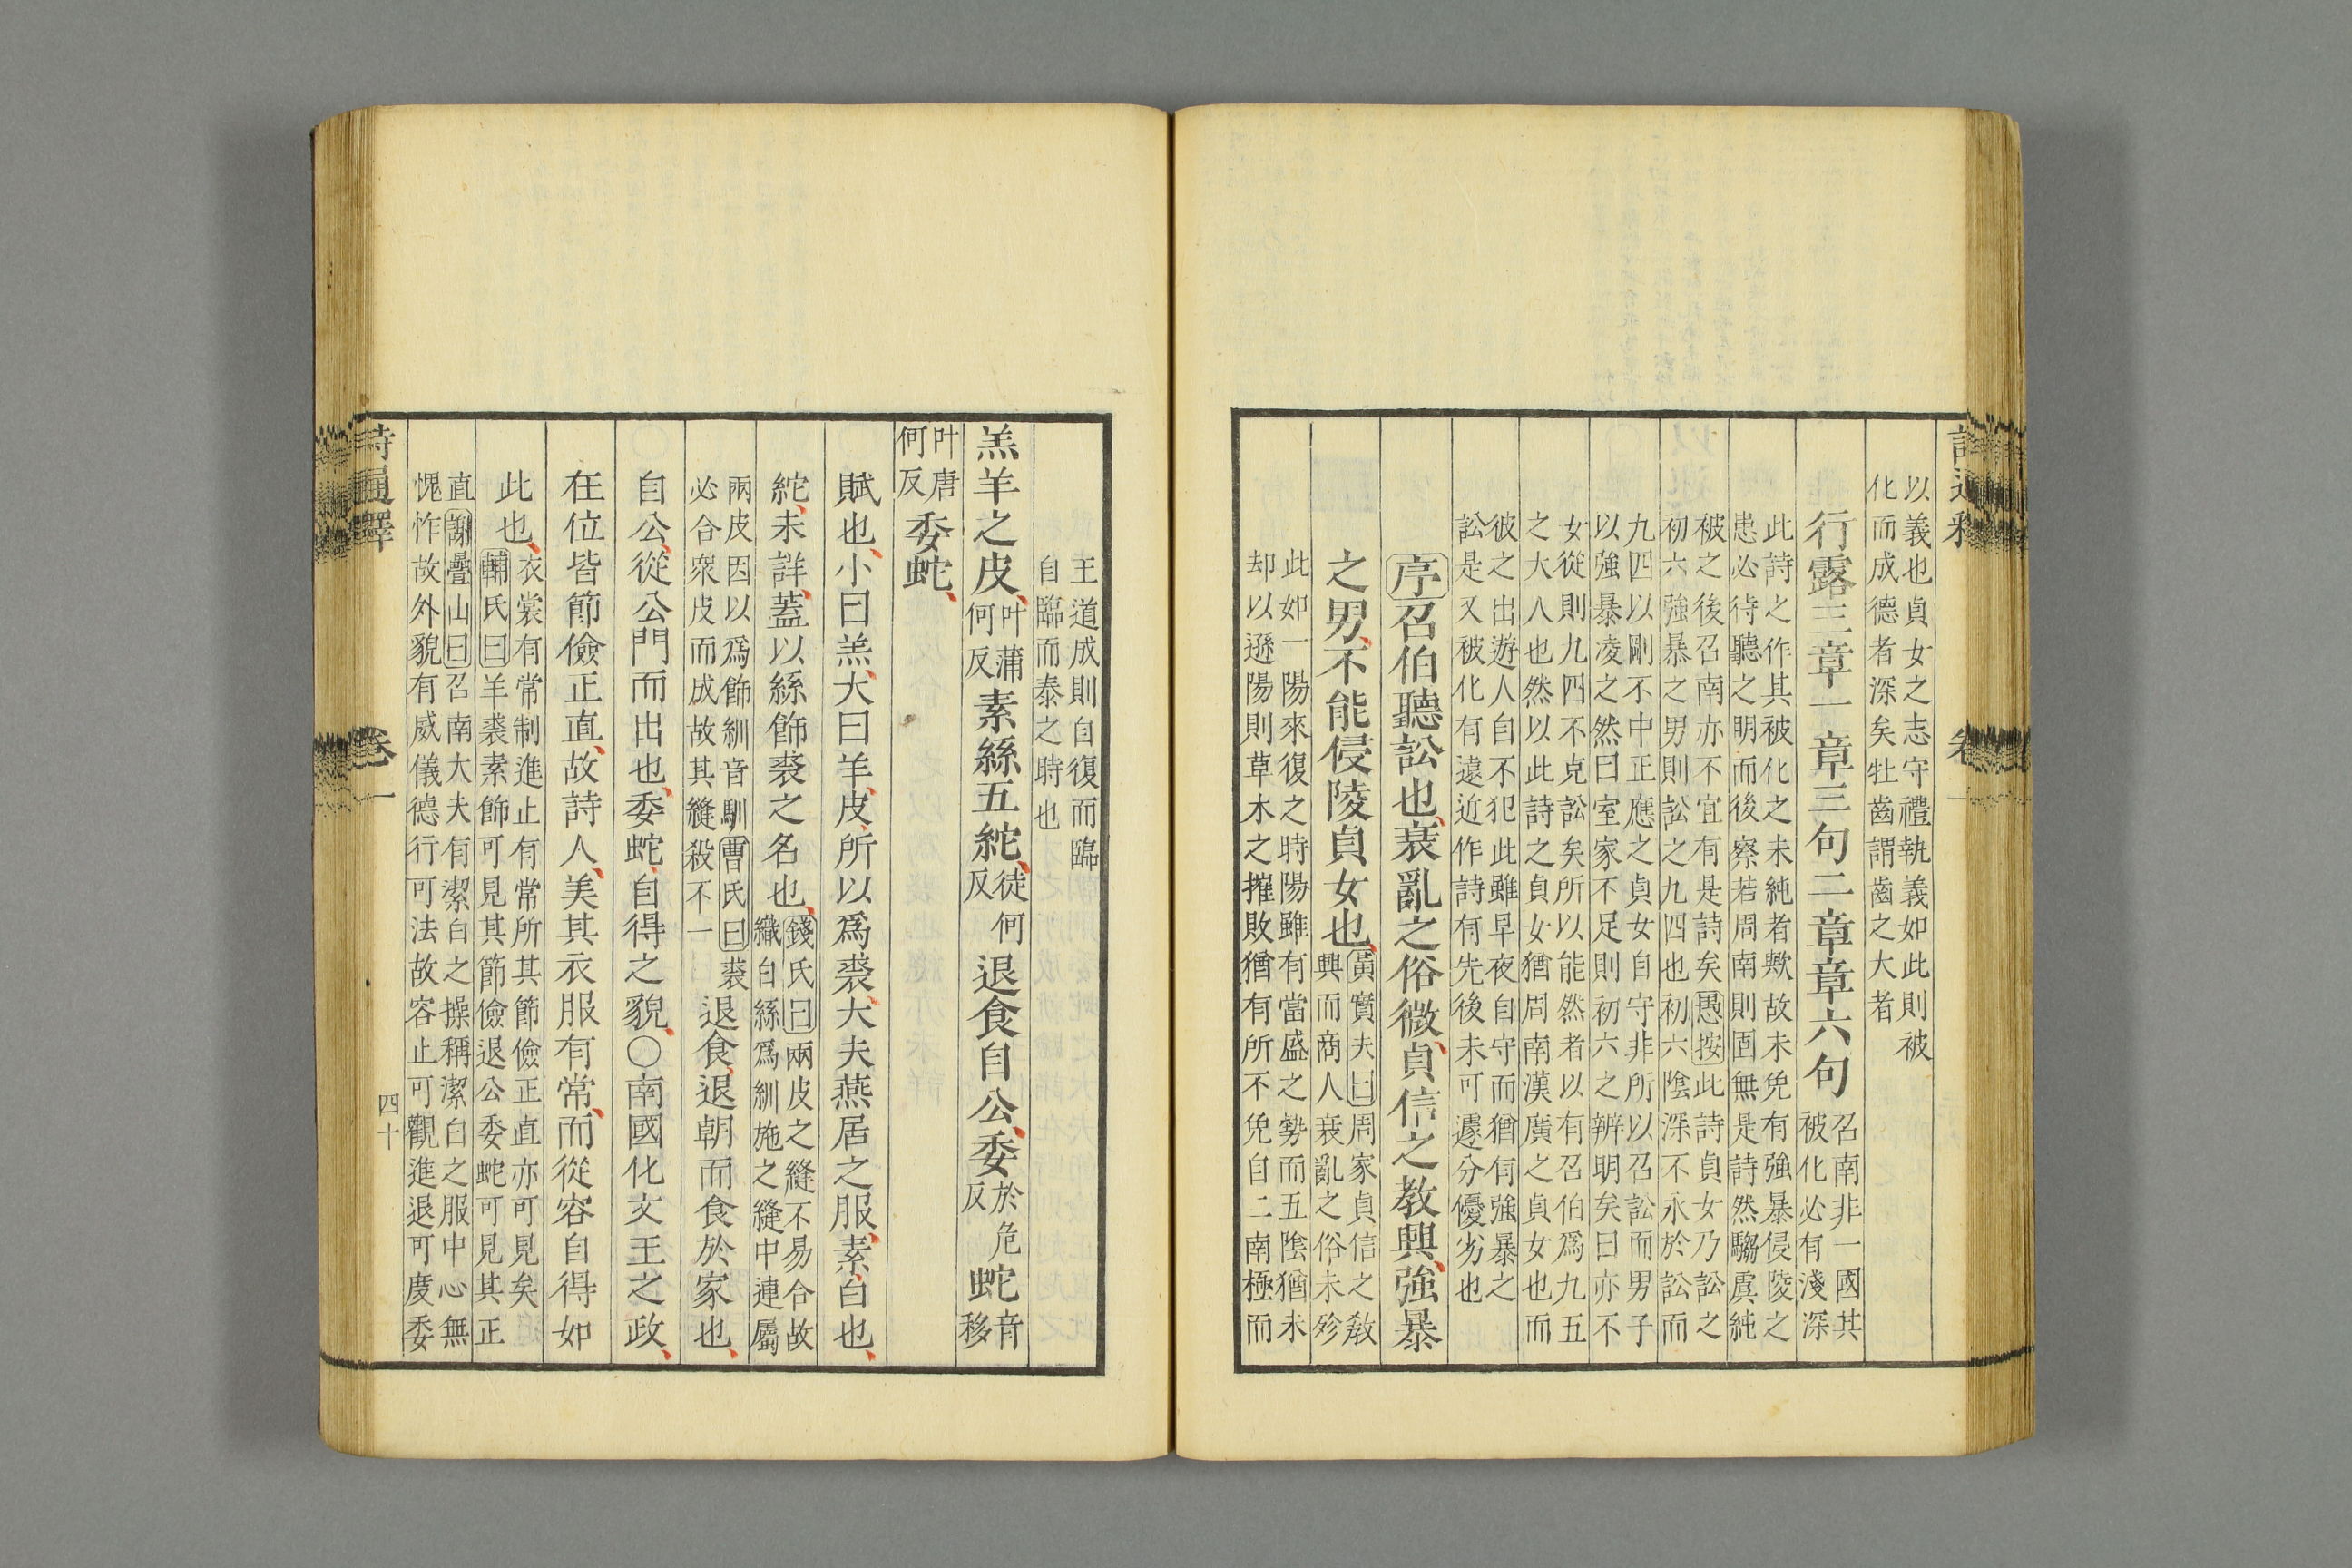 以義也貞女之志守禮執義如此則被
化而成德者深矣牡齒謂齒之大者
行露三章一章三句二章章六句
召南非一國其
被化必有淺深
此詩之作其被化之未純者歟故未免有強暴侵陵之
患必待聽之明而後察若周南則固無是詩然騶虞純
被之後召南亦不宜有是詩矣愚按此詩貞女乃訟之
初六強暴之男則訟之九四也初六陰深不永於訟而
九四以剛不中正應之貞女自守非所以召訟而男子
以強暴凌之然曰室家不足則初六之辨明矣曰亦不
女從則九四不克訟矣所以能然者以有召伯爲九五
之大人也然以此詩之貞女猶周南漢廣之貞女也而
彼之出遊人自不犯此雖早夜自守而猶有強暴之
訟是又被化有遠近作詩有先後未可遽分優劣也
序召伯聽訟也衰亂之俗微貞信之教興強暴
之男不能侵陵貞女也
黃實夫曰周家貞信之敎
興而商人衰亂之俗未殄
此如一陽來復之時陽雖有當盛之勢而五陰猶未
却以遜陽則草木之摧敗猶有所不免自二南極而
詩通釋
卷一
王道成則自復而臨
自臨而泰之時也
羔羊之皮叶蒲何反素絲五紽徒何反退食自公委於危反蛇音移
叶唐何反委蛇
賦也小曰羔大曰羊皮所以爲裘大夫燕居之服素白也
紽未詳蓋以絲飾裘之名也
錢氏曰兩皮之縫不易合故
織白絲爲紃施之縫中連屬
兩皮因以爲飾紃音馴曹氏曰裘
必合衆皮而成故其縫殺不一
退食退朝而食於家也
自公從公門而出也委蛇自得之貌○南國化文王之政
在位皆節儉正直故詩人美其衣服有常而從容自得如
此也
衣裳有常制進止有常所其節儉正直亦可見矣
輔氏曰羊裘素飾可見其節儉退公委蛇可見其正
直謝疊山曰召南大夫有潔白之操稱潔白之服中心無
愧怍故外貌有威儀德行可法故容止可觀進退可度委
詩通釋
卷一
四十